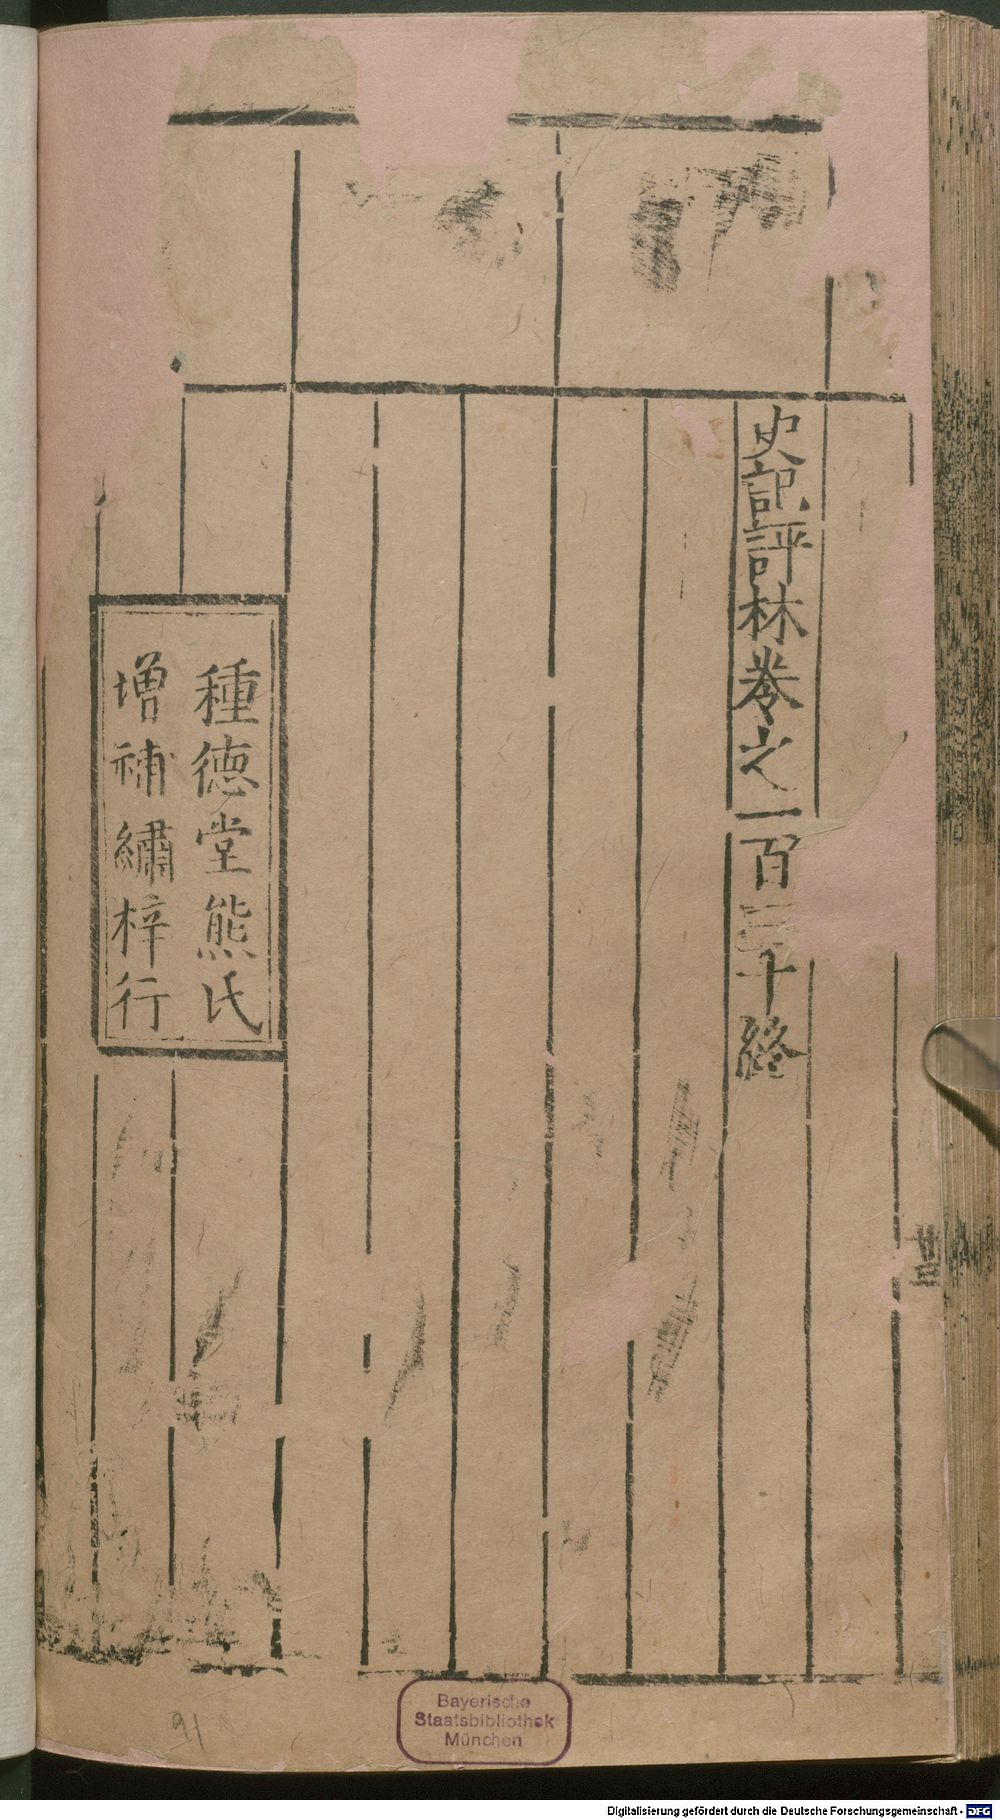 史記評林卷之一百三十終
種德堂熊氏
增補繡梓行
卅三
Bayerische
Staatsbibliothek
München
91
Digitalisierung gefördert durch die Deutsche Forschungsgemeinschaft - DFG